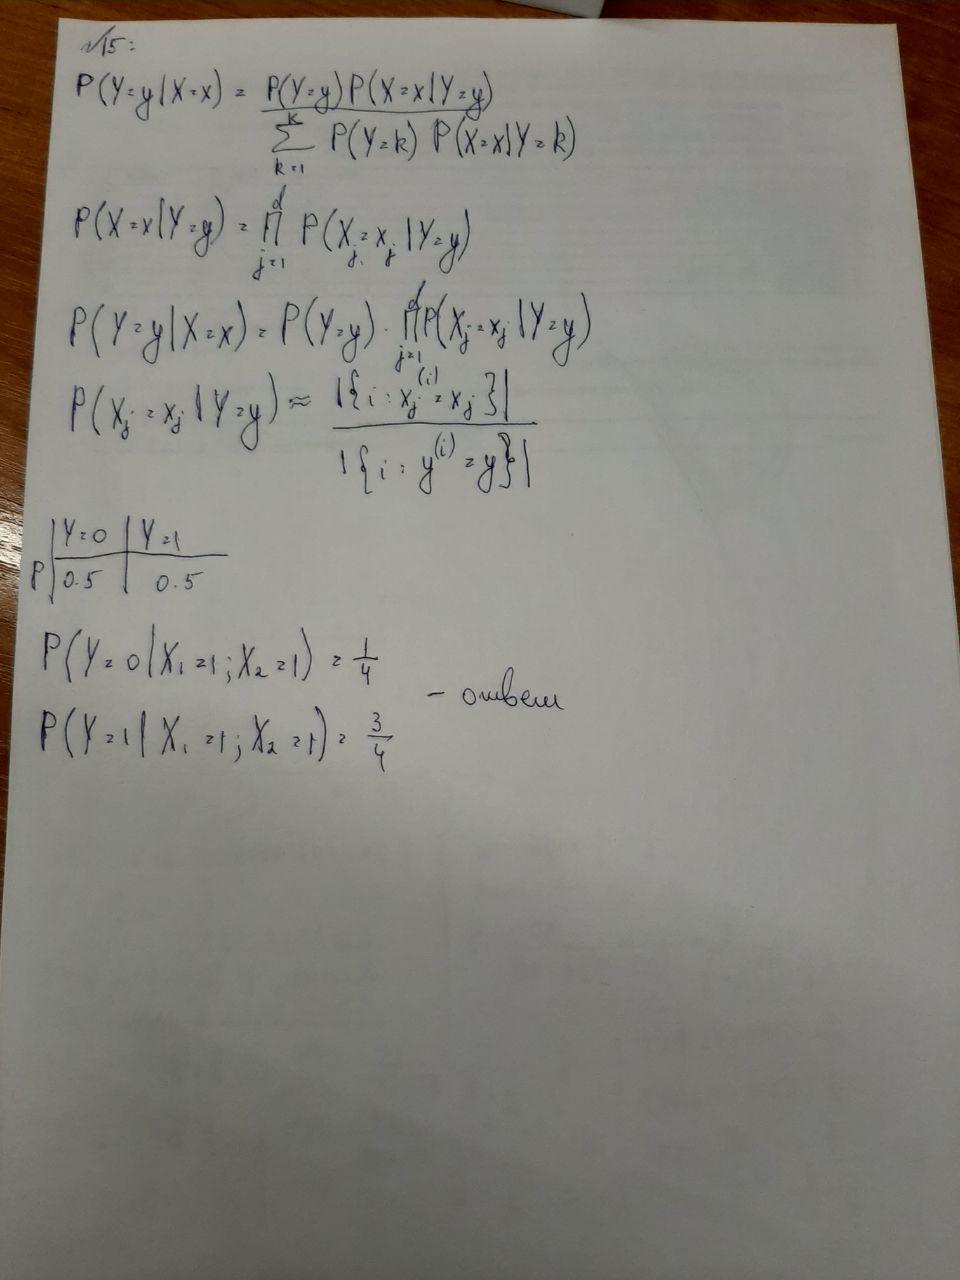 √15:
P(Y=y|X=x) = P(Y=y)P(X=x|Y=y) / K ∑ k=1 P(Y=k) P(X=x|Y=k)
P(X=x|Y=y) = d ∏ j=1 P(X_j=x_j|Y=y)
P(Y=y|X=x) = P(Y=y) · d ∏ j=1 P(X_j=x_j|Y=y)
P(X_j=x_j|Y=y) ≈ |{i: x_j^(i)=x_j}| / |{i: y^(i)=y}|
Y=0 | Y=1
P | 0.5 | 0.5
P(Y=0|X₁=1;X₂=1) = 1/4
- ответ
P(Y=1|X₁=1;X₂=1) = 3/4